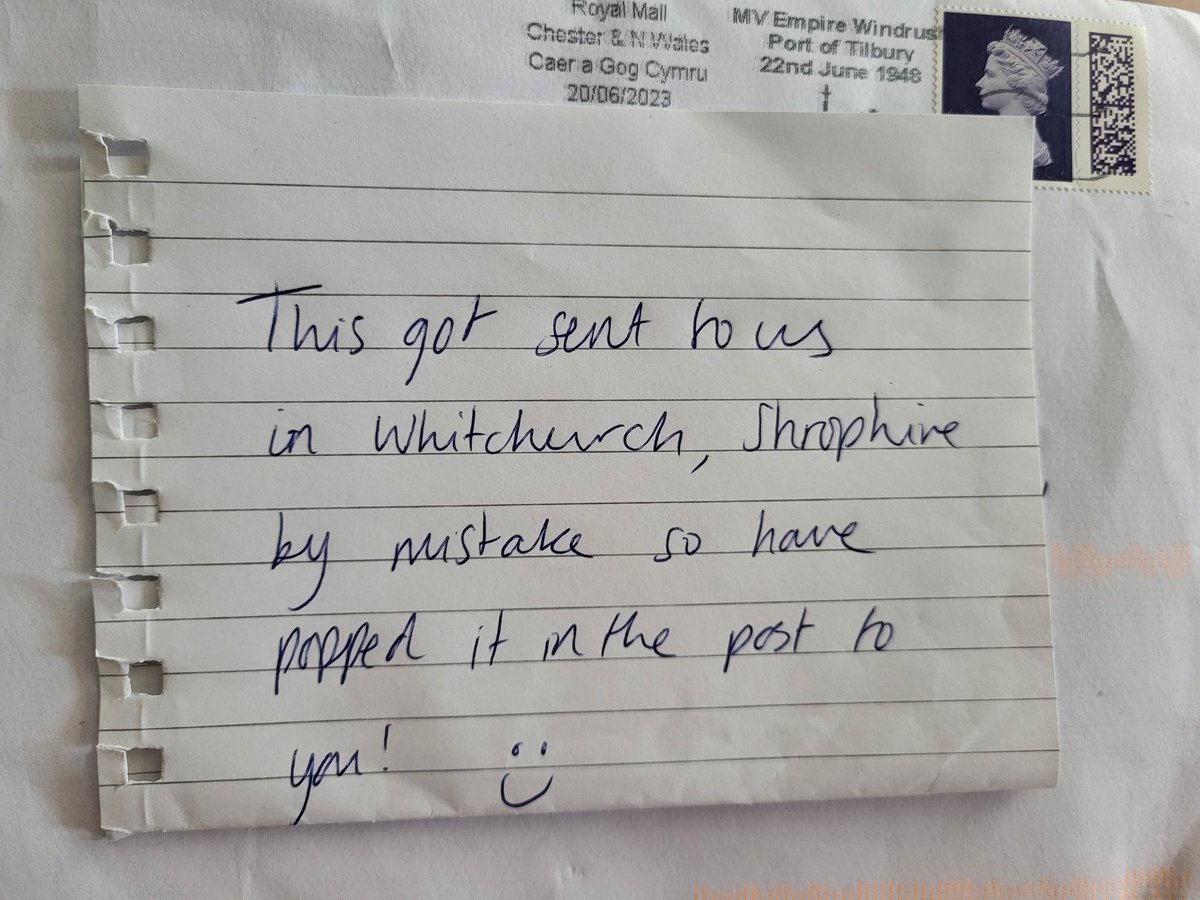 Royal Mail
Chester & N Wales
Caer a Gog Cymru
20/06/2023
MV Empire Windrush
Port of Tilbury
22nd June 1948
This got sent to us
in Whitchurch, Shrophire
by mistake so have
popped it in the post to
you!